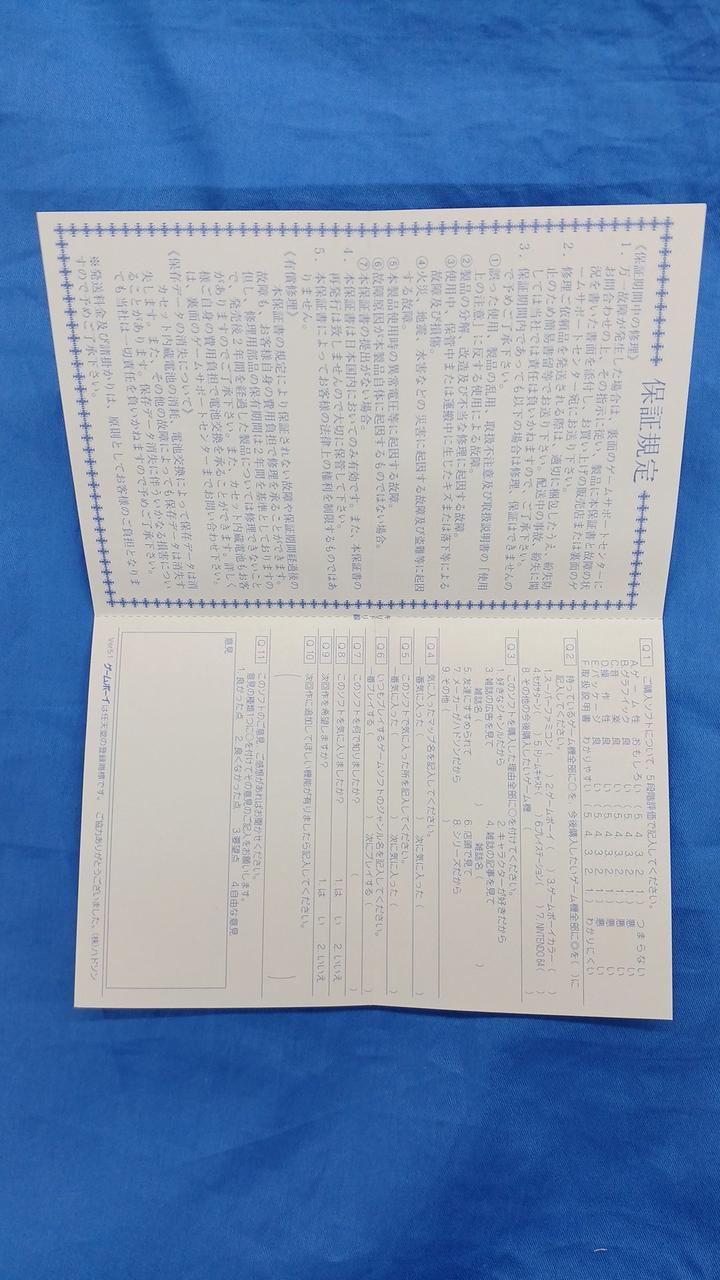 保証規定
《保証期間中の修理》
1. 万一故障が発生した場合は、裏面のゲームサポートセンターに
お問合わせの上、その指示に従い、製品に本保証書と故障の状
況を書いた書面を添付し、お買い上げの販売店または裏面のゲ
ームサポートセンター宛にお送り下さい。
2. 修理ご依頼品を発送される際は、適切に梱包したうえ、紛失防
止のため簡易書留等でお送り下さい。配送中の事故、紛失に関
しては当社では責任を負いかねますので、ご了承下さい。
3. 保証期間内であっても以下の場合は修理、保証はできませんの
で予めご了承下さい。
①誤った使用、製品の乱用、取扱不注意及び取扱説明書の「使用
上の注意」に反する使用による故障。
②製品の分解、改造及び不当な修理に起因する故障。
③使用中、保管中または運搬中に生じたキズまたは落下等による
故障及び損傷。
④火災、地震、水害などの災害に起因する故障及び盗難等に起因
する故障。
⑤本製品使用時の異常電圧等に起因する故障。
⑥故障原因が本製品自体に起因するものではない場合。
⑦本保証書の提出がない場合
4. 本保証書は日本国内においてのみ有効です。また、本保証書の
再発行は致しませんので大切に保管して下さい。
5. 本保証書によってお客様の法律上の権利を制限するものではあ
りません。
《有償修理》
本保証書の規定により保証されない故障や保証期間経過後の
故障も、お客様自身の費用負担で修理を承ることができます。
但し、修理用部品の保有期間は2年間を基準としておりますの
で、発売後2年間を経過した製品については修理できないこと
がありますので予めご了承下さい。また、カセット内蔵電池もお客
様ご自身の費用負担で電池交換を承ることができます。詳しく
は、裏面のゲームサポートセンターまでお問い合わせ下さい。
《保存データの消失について》
カセット内蔵電池の消耗、電池交換によって保存データは消
失します。また、その他の故障によっても保存データは消失す
ることがあります。保存データ消失に伴ういかなる損害につい
ても当社は一切責任を負いかねますので予めご了承下さい。
※発送料金及び諸掛かりは、原則としてお客様のご負担となりま
すので予めご了承下さい。
キリ
Q1 ご購入ソフトについて、5段階評価で記入してください。
A.ゲーム性 おもしろい (5. 4. 3. 2. 1.) つまらない
B.グラフィック 良い (5. 4. 3. 2. 1.) 悪い
C.音楽 良い (5. 4. 3. 2. 1.) 悪い
D.操作性 良い (5. 4. 3. 2. 1.) 悪い
E.パッケージ 良い (5. 4. 3. 2. 1.) 悪い
F.取扱説明書 わかりやすい (5. 4. 3. 2. 1.) わかりにくい
Q2 持っているゲーム機全部に○を、今後購入したいゲーム機全部に◎を( )に
記入してください。
1.スーパーファミコン( ) 2.ゲームボーイ( ) 3.ゲームボーイカラー( )
4.セガサターン( ) 5.ドリームキャスト( ) 6.プレイステーション( ) 7. NINTENDO 64( )
8.その他の今後購入したいゲーム機( )
Q3 このソフトを購入した理由全部に○を付けてください。
1.好きなジャンルだから 2.キャラクターが好きだから
3.雑誌の広告を見て 4.雑誌の記事を見て
雑誌名( ) 雑誌名( )
5.友達にすすめられて 6.店頭で見て
7.メーカーがハドソンだから 8.シリーズだから
9.その他( )
Q4 気に入ったマップ名を記入してください。
一番気に入った( ) 次に気に入った( )
Q5 このソフトで気に入った所を記入してください。
一番気に入った( ) 次に気に入った( )
Q6 いつもプレイするゲームソフトのジャンル名を記入してください。
一番プレイする( ) 次にプレイする( )
Q7 このソフトを何で知りましたか? ( )
Q8 このソフトを気に入りましたか? 1.はい 2.いいえ
Q9 次回作を希望しますか? 1.はい 2.いいえ
Q10 次回作に追加してほしい機能が有りましたら記入してください。
( )
Q11 このソフトのご意見、ご感想があればお聞かせください。
意見の種類1つに○を付けてその意見のご記入をお願いします。
1.良かった点 2.良くなかった点 3.要望点 4.自由な意見
意見
Ver.5.1 ゲームボーイは任天堂の登録商標です。 ご協力ありがとうございました。(株)ハドソン